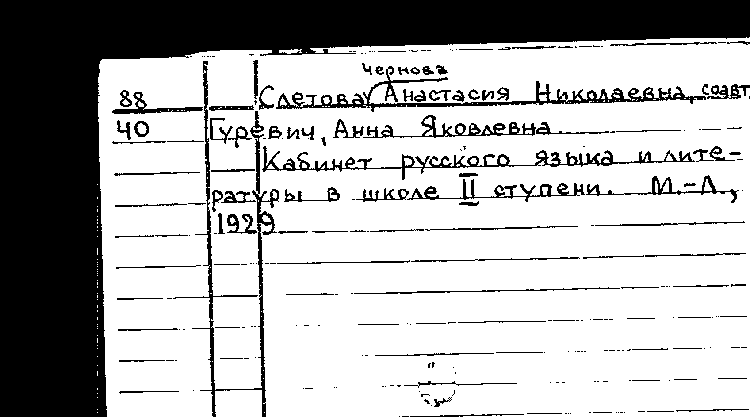 Чернова
88 Слетова, Анастасия Николаевна, соавт.
40 Гуревич, Анна Яковлевна.
Кабинет русского языка и лите-
ратуры в школе II ступени. М.-Л.,
1929